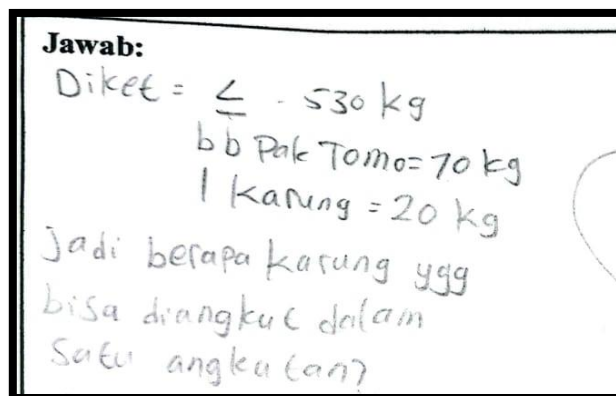 Jawab:
Diket = ≤ - 530 kg
bb Pak Tomo = 70 kg
1 karung = 20 kg
Jadi berapa karung ygg
bisa diangkut dalam
satu angkutan?